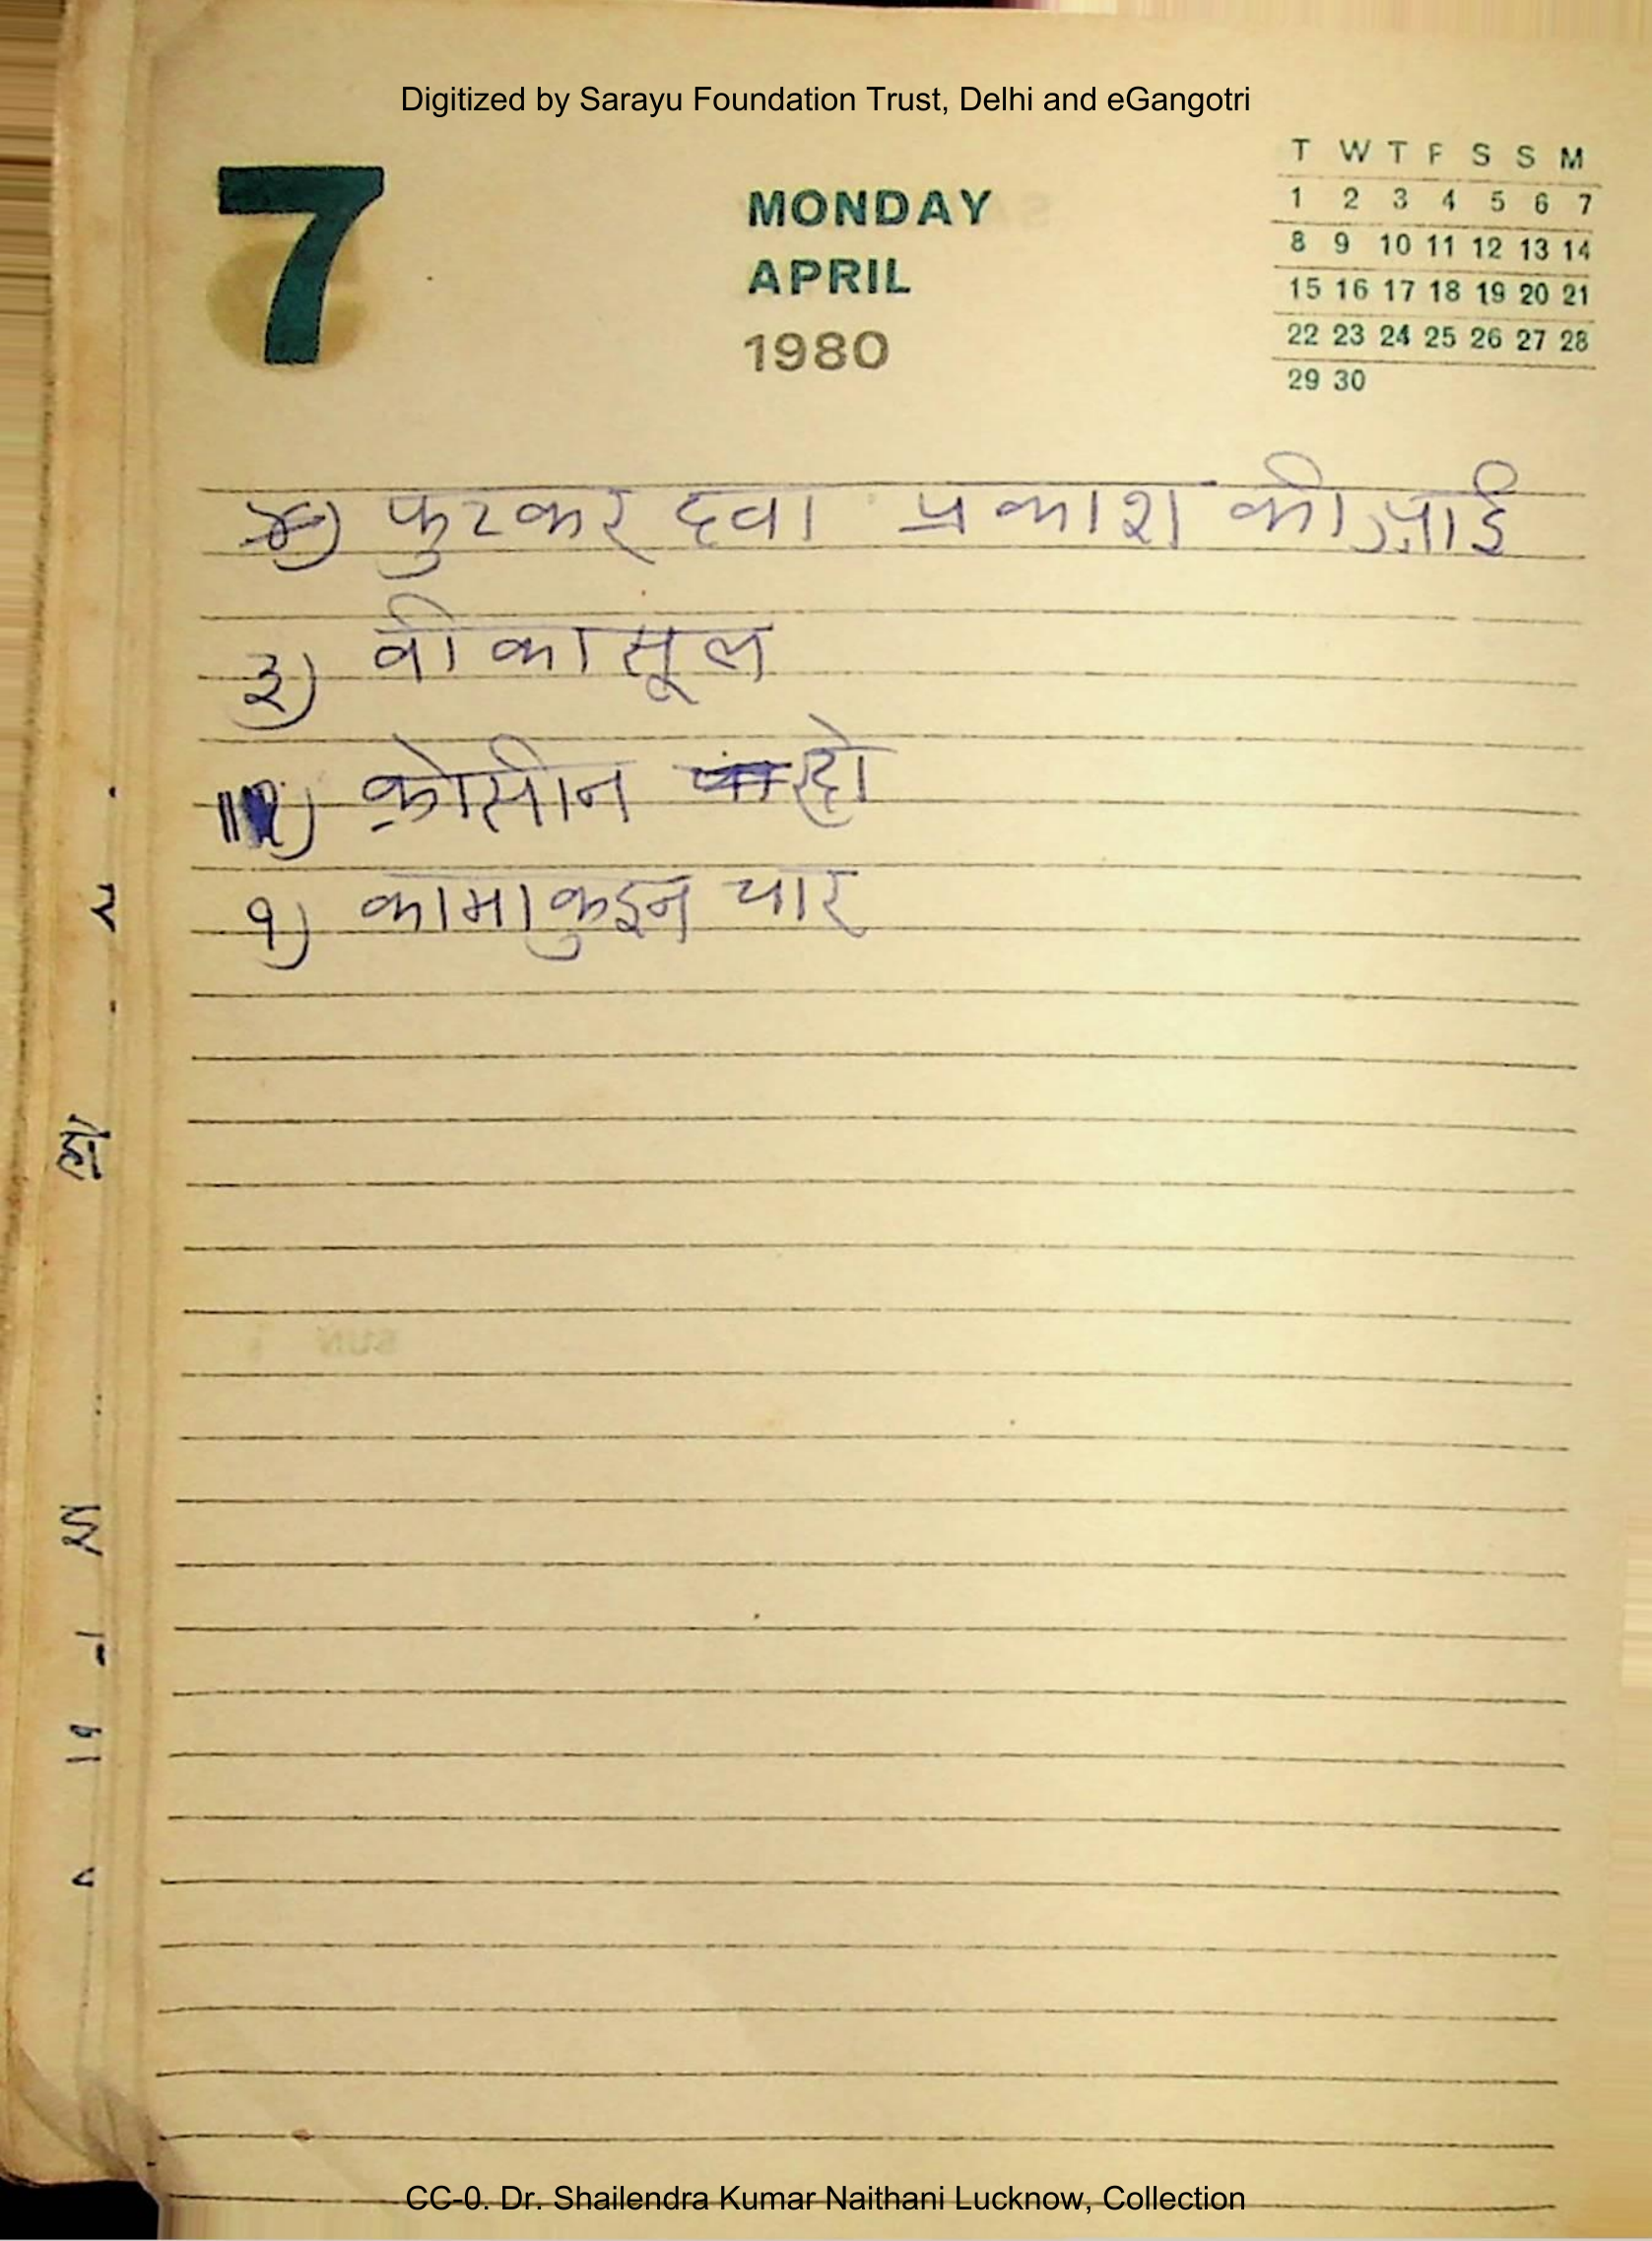 Digitized by Sarayu Foundation Trust, Delhi and eGangotri
7
MONDAY
APRIL
1980
T W T F S S M
1 2 3 4 5 6 7
8 9 10 11 12 13 14
15 16 17 18 19 20 21
22 23 24 25 26 27 28
29 30
फुटकर दवा प्रकाश की आई
३) वीकासूल
२) क्रोसीन दो
१) कामाकुइन चार
CC-0. Dr. Shailendra Kumar Naithani Lucknow, Collection